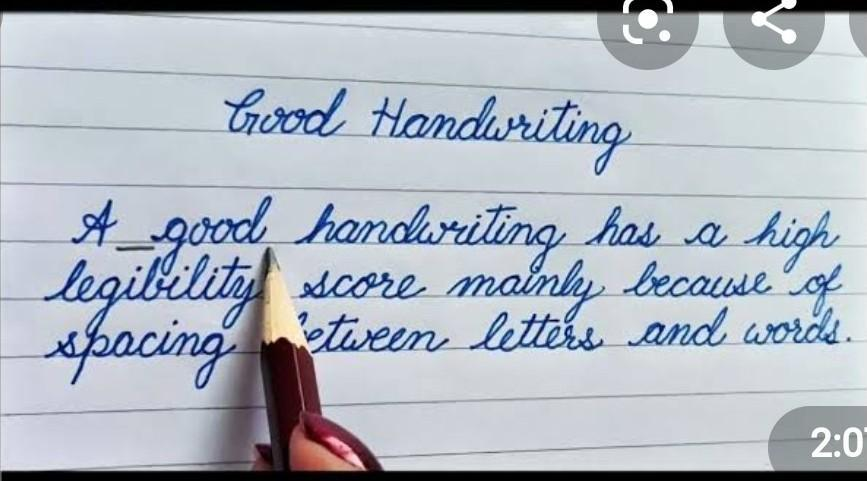 Good Handwriting
A _ good handwriting has a high
legibility score mainly because of
spacing between letters and words.
2:07